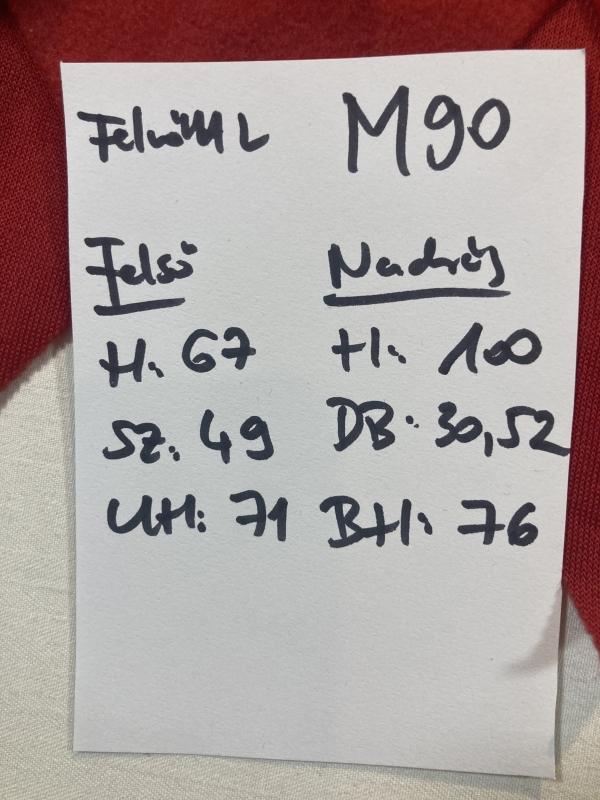 Felnőtt L M90
Felső Nadrág
H: 67 H: 100
SZ: 49 DB: 30,52
UH: 71 BH: 76